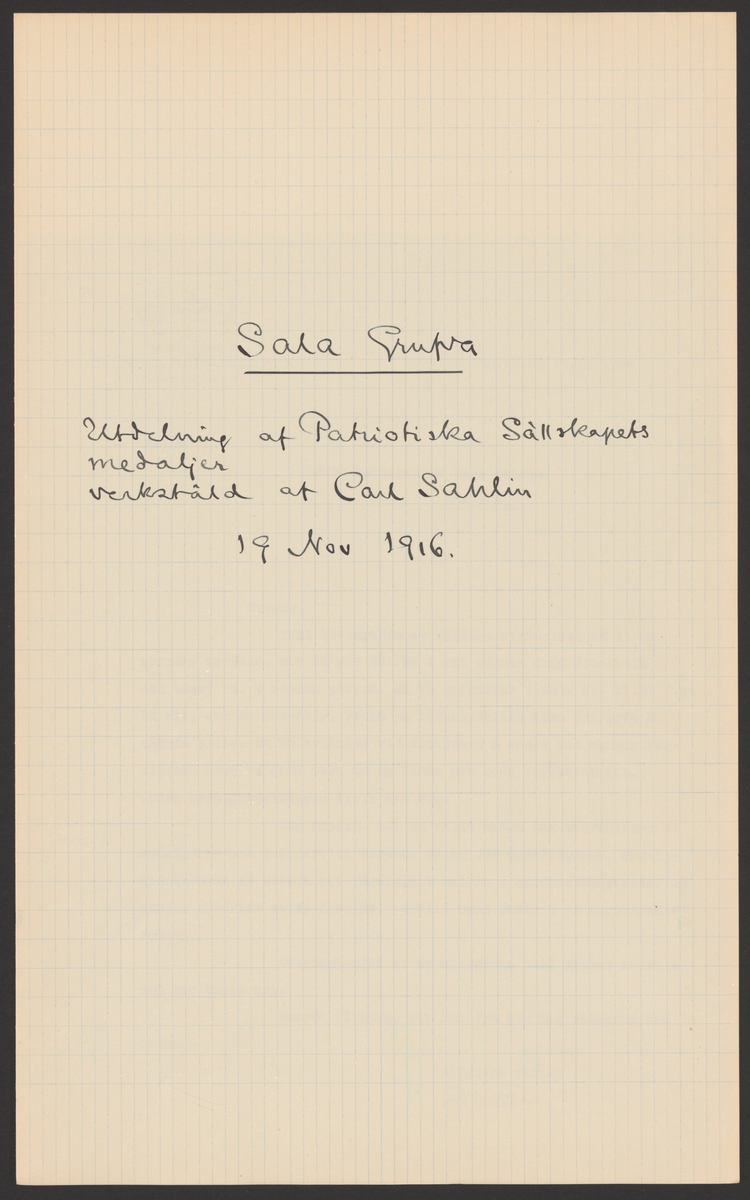 Sala Grufva
Utdelning af Patriotiska Sällskapets
medaljer
verkstäld af Carl Sahlin
19 Nov 1916.